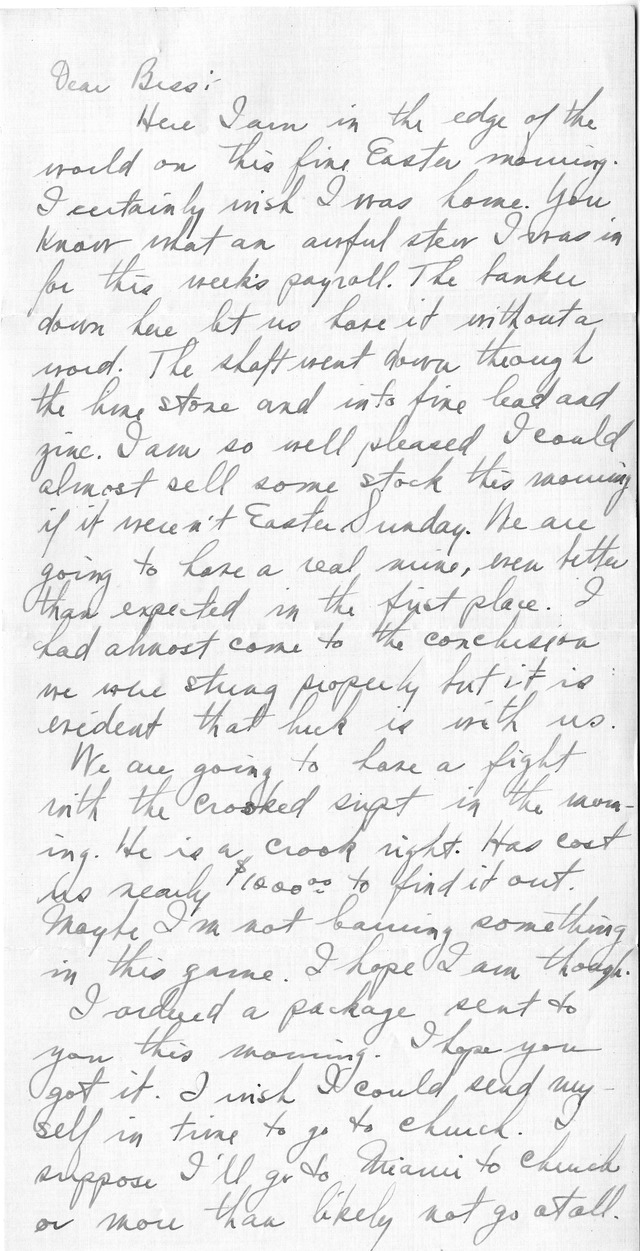 Dear Bess:-
Here I am in the edge of the
world on this fine Easter morning.
I certainly wish I was home. You
know what an awful stew I was in
for this week's payroll. The banker
down here let us have it without a
word. The shaft went down through
the lime stone and into fine lead and
zinc. I am so well pleased I could
almost sell some stock this morning
if it weren't Easter Sunday. We are
going to have a real mine, even better
than expected in the first place. I
had almost come to the conclusion
we were stung properly but it is
evident that luck is with us.
We are going to have a fight
with the crooked supt in the morn-
ing. He is a crook right. Has cost
us nearly $1000.00 to find it out.
Maybe I'm not learning something
in this game. I hope I am though.
I ordered a package sent to
you this morning. I hope you
got it. I wish I could send my-
self in time to go to church. I
suppose I'll go to Miami to church
or more than likely not go at all.